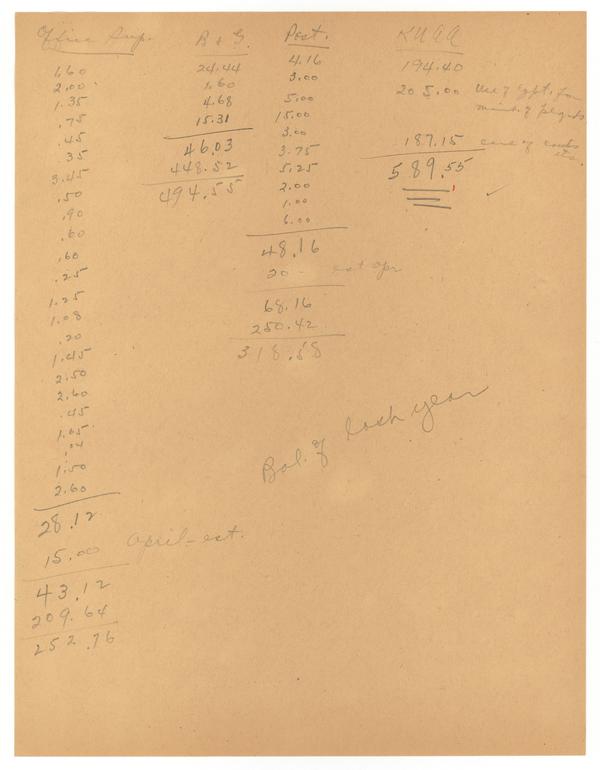 Office Sup.
1.60
2.00
1.35
.75
.45
.35
3.45
.50
.90
.60
.60
.25
1.25
1.08
.20
1.45
2.50
2.60
.45
1.65
.04
1.50
2.60
28.12
15.00 April-est.
43.12
209.64
252.76
B & G.
24.44
1.60
4.68
15.31
46.03
448.52
494.55
Post.
4.16
3.00
5.00
15.00
3.00
3.75
5.25
2.00
1.00
6.00
48.16
20 - est Apr
68.16
250.42
318.58
KUAA
194.40
205.00 Use of Eqpt. for
maint. of playgds
187.15 care of courts
etc.
589.55
✓
Bal. of last year